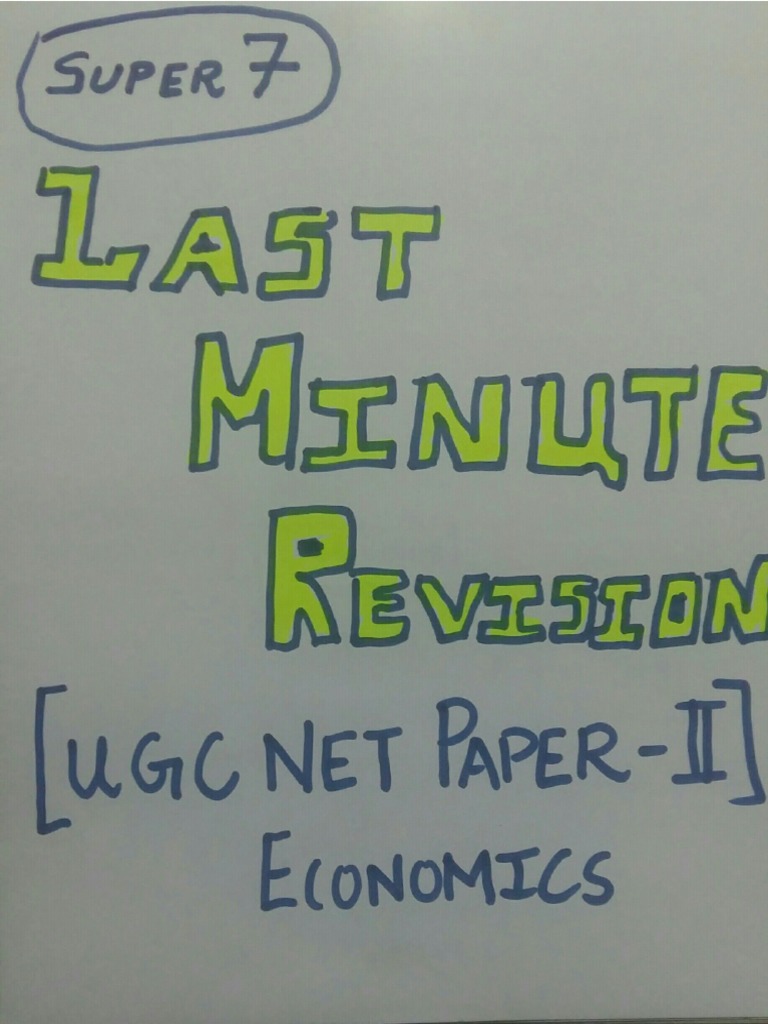 SUPER 7
LAST
MINUTE
REVISION
[UGC NET PAPER-II]
ECONOMICS